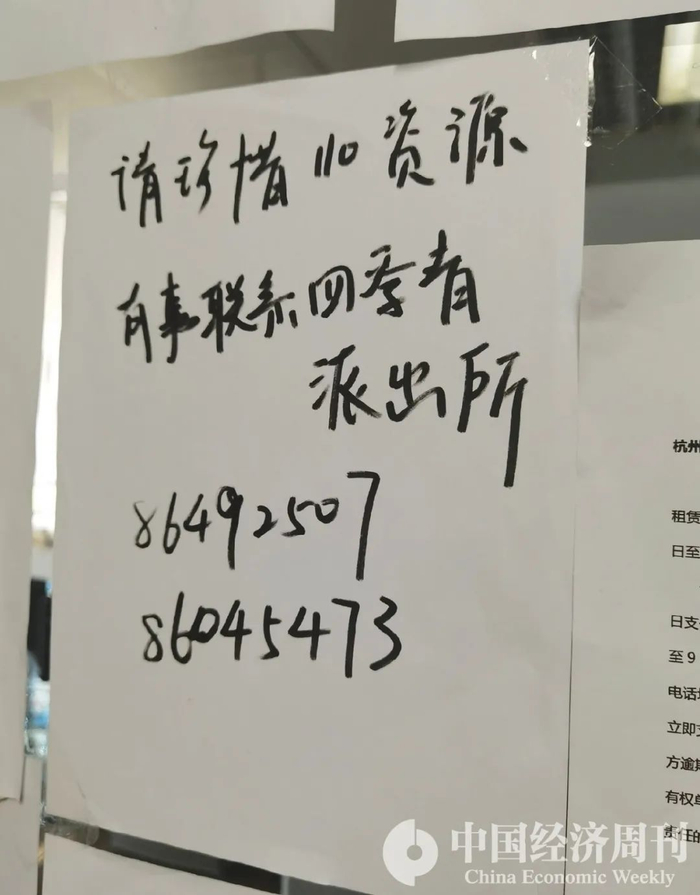 请珍惜110资源
有事联系四季青
派出所
86492507
86045473
杭州
租赁
日至
日支
至9
电话
立即
方逾期
有权单
责任的
中国经济周刊
China Economic Weekly